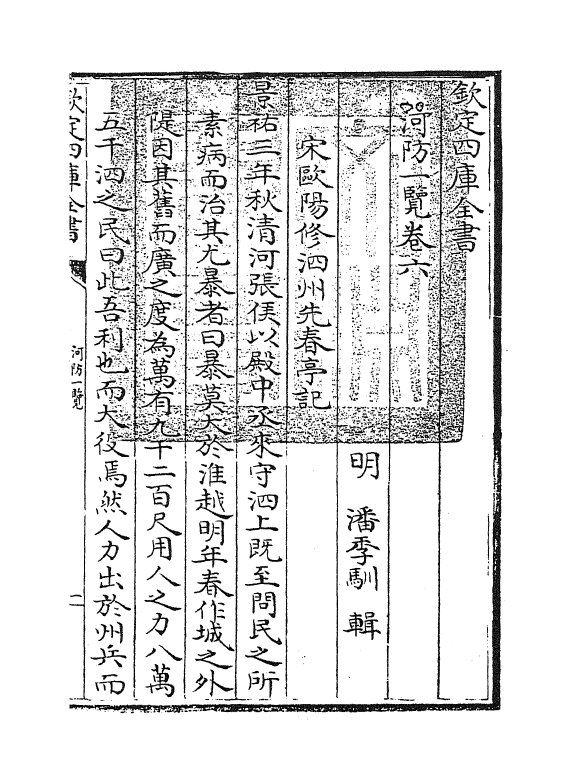 欽定四庫全書
河防一覽卷六
明 潘季馴 輯
宋歐陽修泗州先春亭記
景祐三年秋清河張侯以殿中丞來守泗上既至問民之所
素病而治其尤暴者曰暴莫大於淮越明年春作城之外
隄因其舊而廣之度為萬有九千二百尺用人之力八萬
五千泗之民曰此吾利也而大役焉然人力出於州兵而
欽定四庫全書
河防一覽